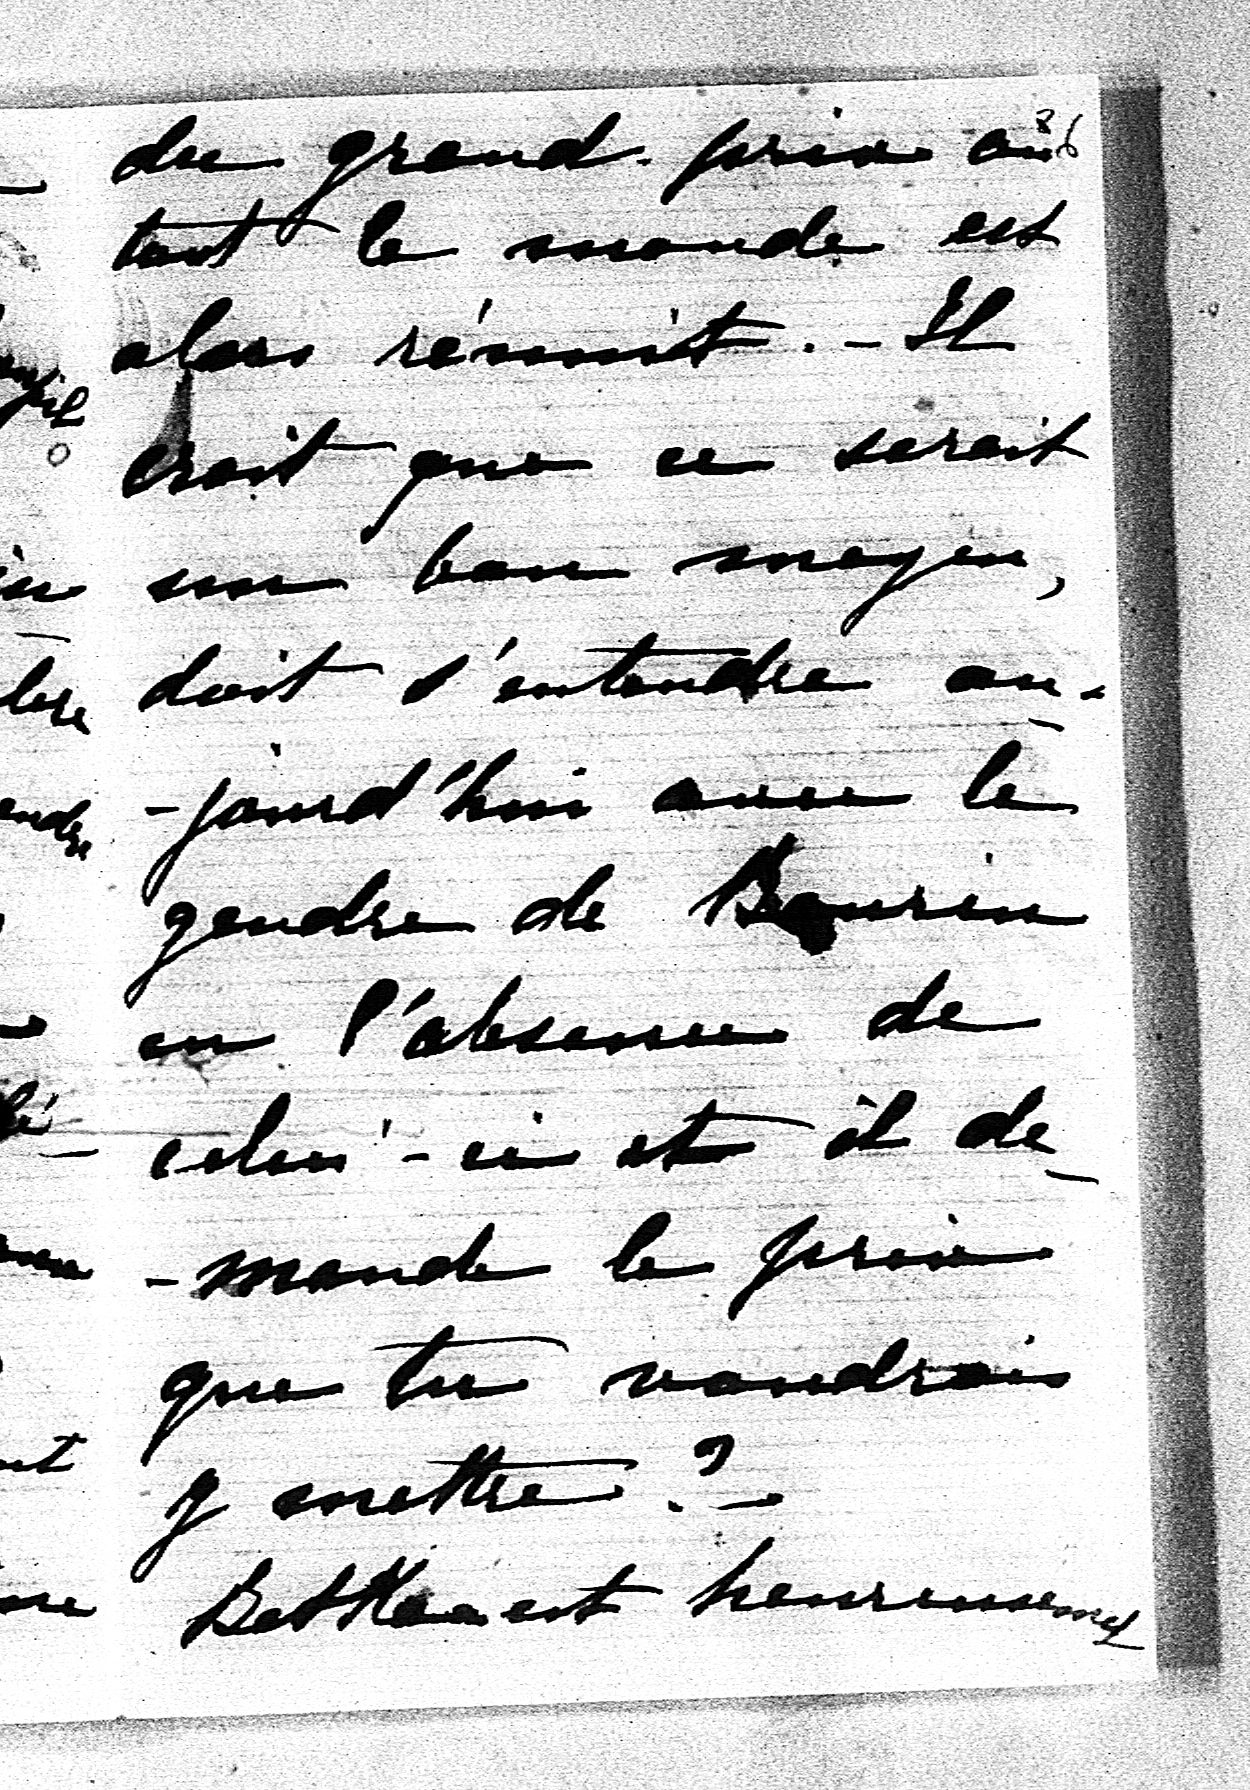 86
du grand-prix où
tout le monde est
alors réunit. - Il
croit que ce serait
un bon moyen,
doit s'entendre au-
-jourd'hui avec le
gendre de Bourin
en l'absence de
celui-ci et il de-
-mande le prix
que tu voudrais
y mettre ? -
est heureusement